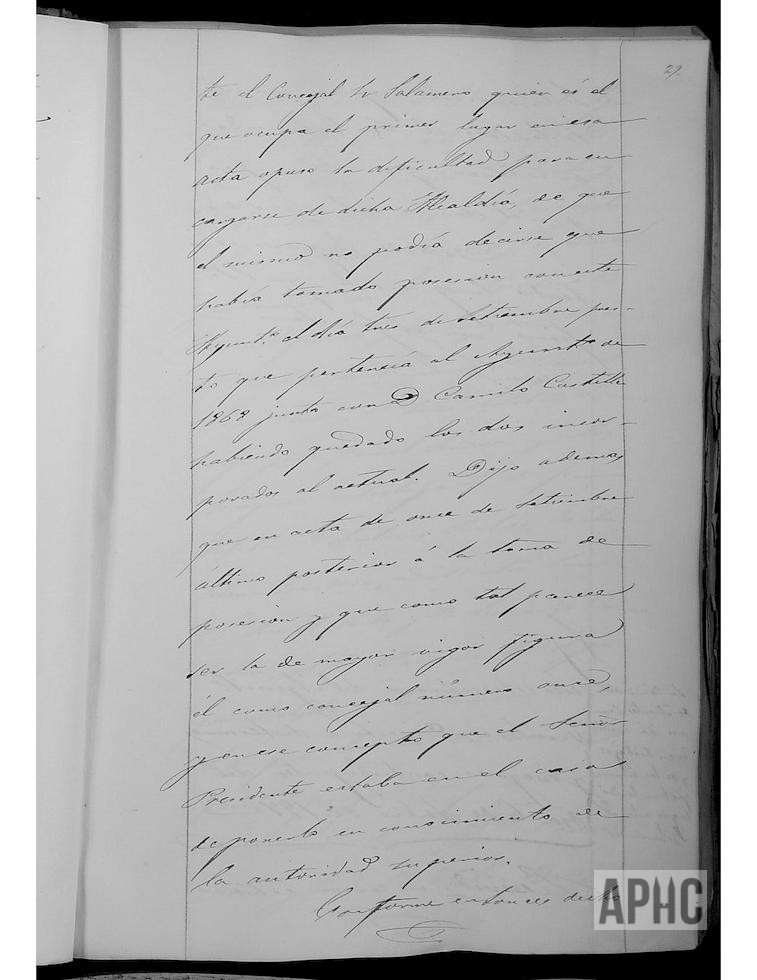 29.
te el Concejal Sr Salamero quien es el
que ocupa el primer lugar en esa
acta opuso la dificultad para en
cargarse de dicha Alcaldía, de que
el mismo no podía decirse que
había tomado posesion con este
Ayunt.º el día tres de Setiembre pues-
to que pertenecía al Ayunt.º de
1868 junto con D Camilo Castilla
habiendo quedado los dos incor-
porados al actual. Dijo ademas
que en acta de once de Setiembre
último posterior á la toma de
posesion y que como tal parece
ser la de mayor vigor figura
él como concejal número once,
y en ese concepto que el Señor
Presidente estaba en el caso
de ponerlo en conocimiento de
la autoridad superior.
Conforme entonces dicho
APHC